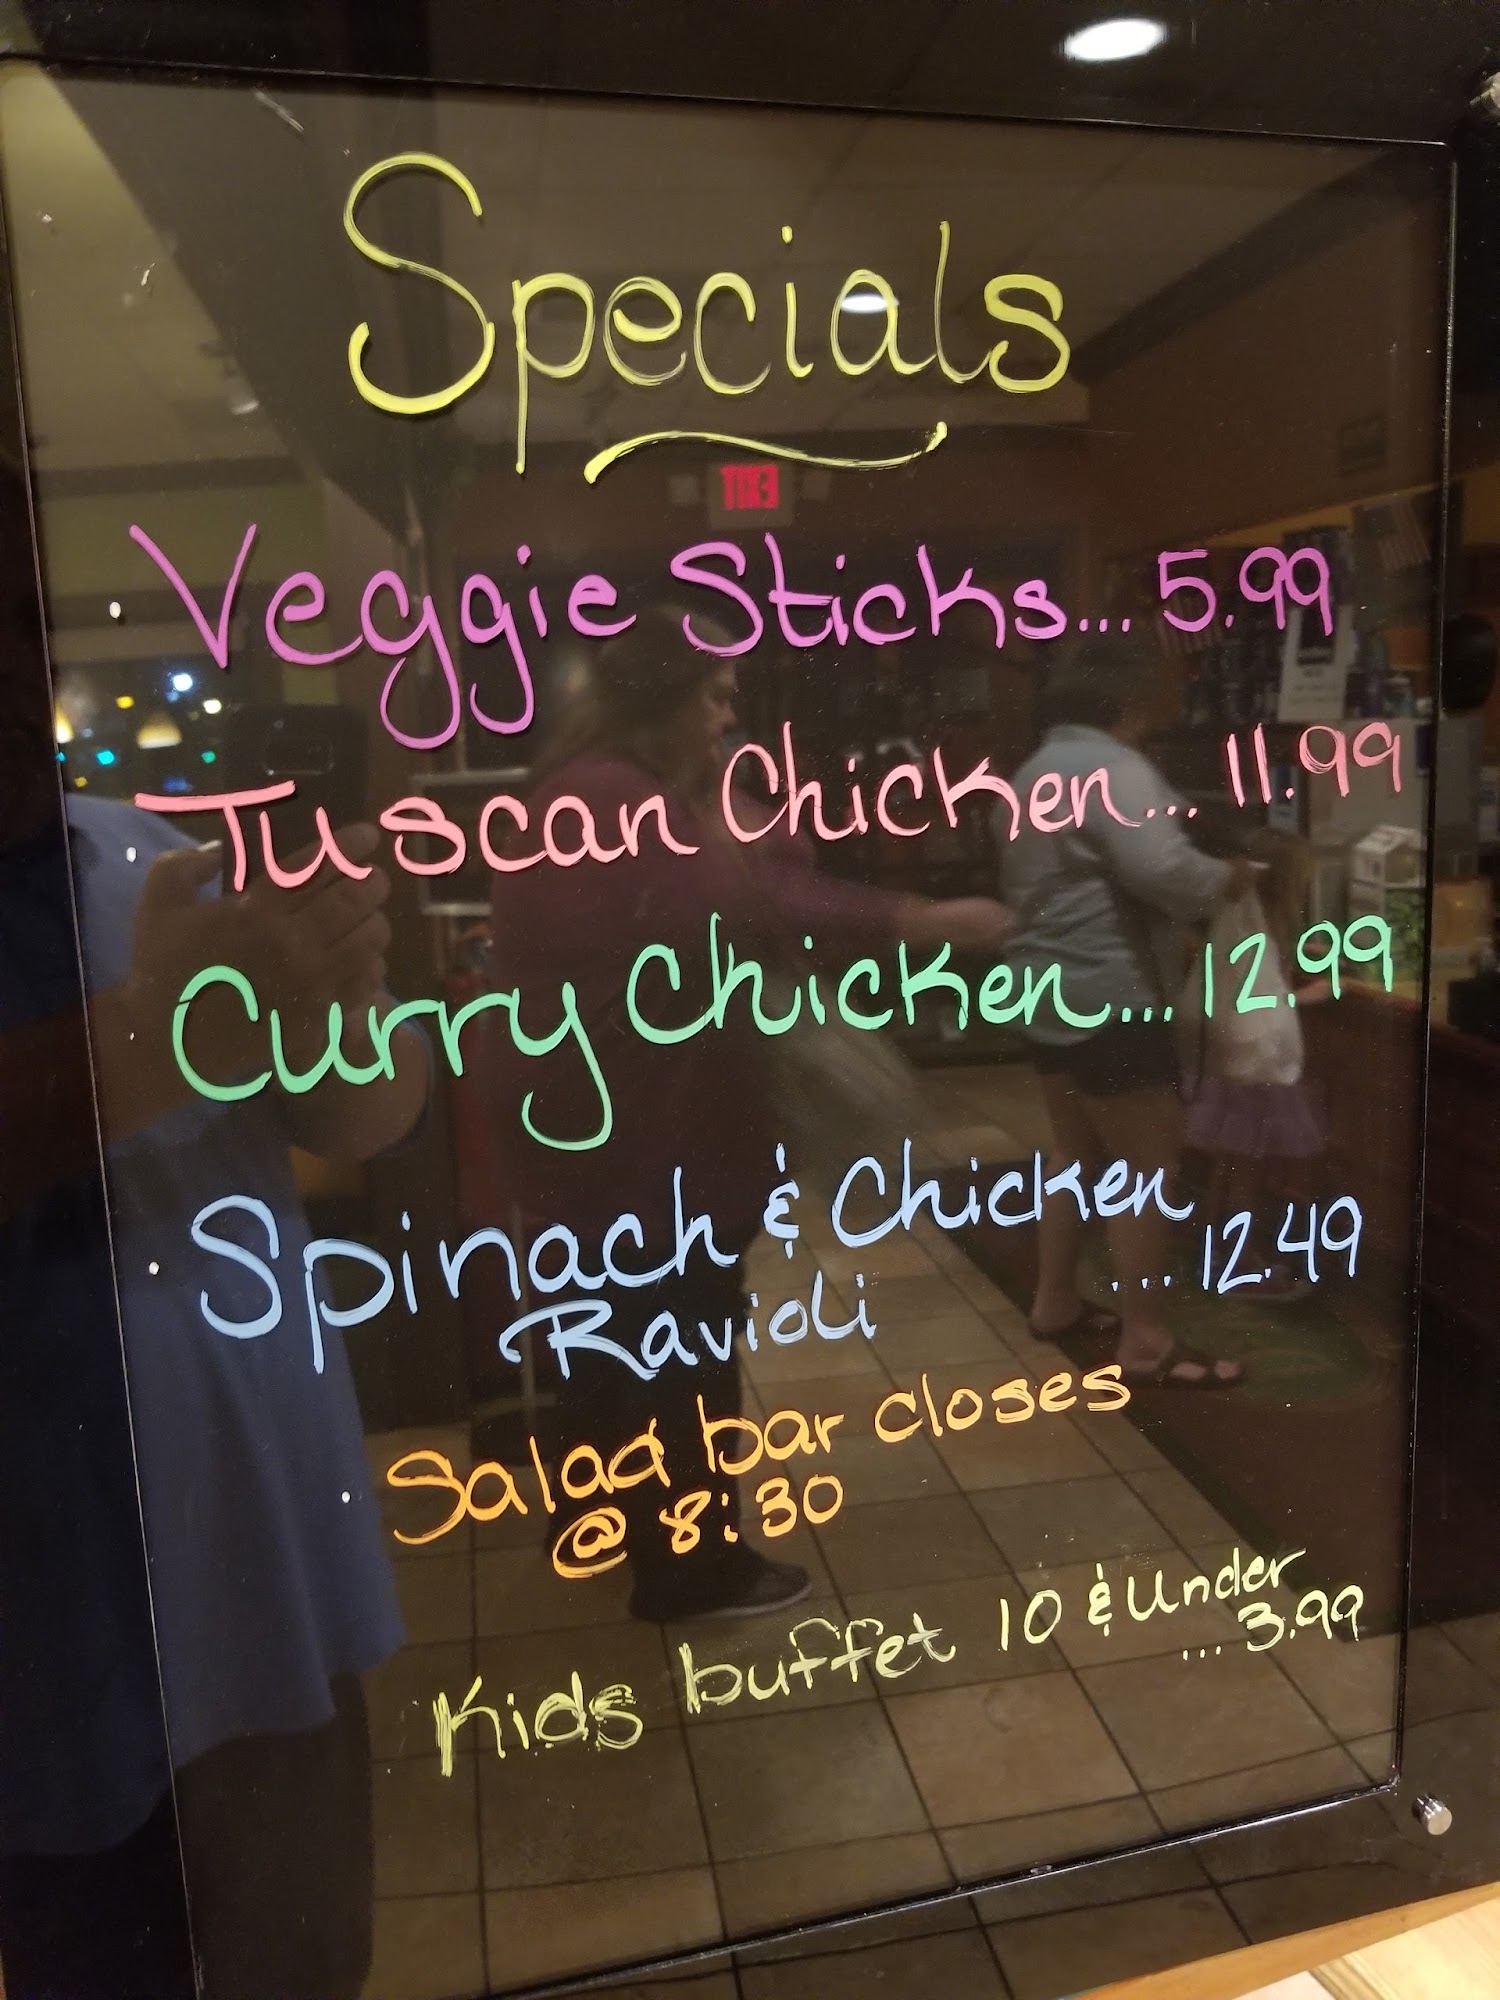 Specials
Veggie Sticks... 5.99
Tuscan Chicken... 11.99
Curry Chicken... 12.99
Spinach & Chicken
Ravioli ... 12.49
Salad bar closes
@ 8:30
Kids buffet 10 & Under
... 3.99
EXIT